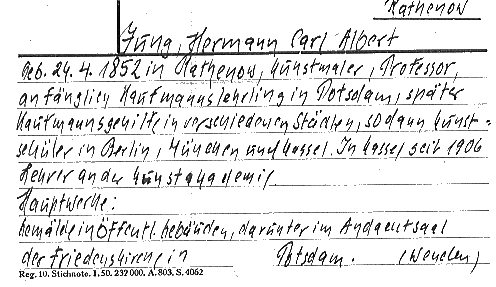 Rathenow
Jung, Hermann Carl Albert
geb. 24. 4. 1852 in Rathenow, Kunstmaler, Professor,
anfänglich Kaufmannslehrling in Potsdam, später
Kaufmannsgehilfe in verschiedenen Städten, sodann Kunst-
schüler in Berlin, München und Kassel. In Kassel seit 1906
Lehrer an der Kunstakademie
Hauptwerke:
Gemälde in öffentl. Gebäuden, darunter im Andachtsaal
der Friedenskirche in Potsdam.
Reg. 10. Stichnote. 1. 50. 232 000. A. 803. S. 4062